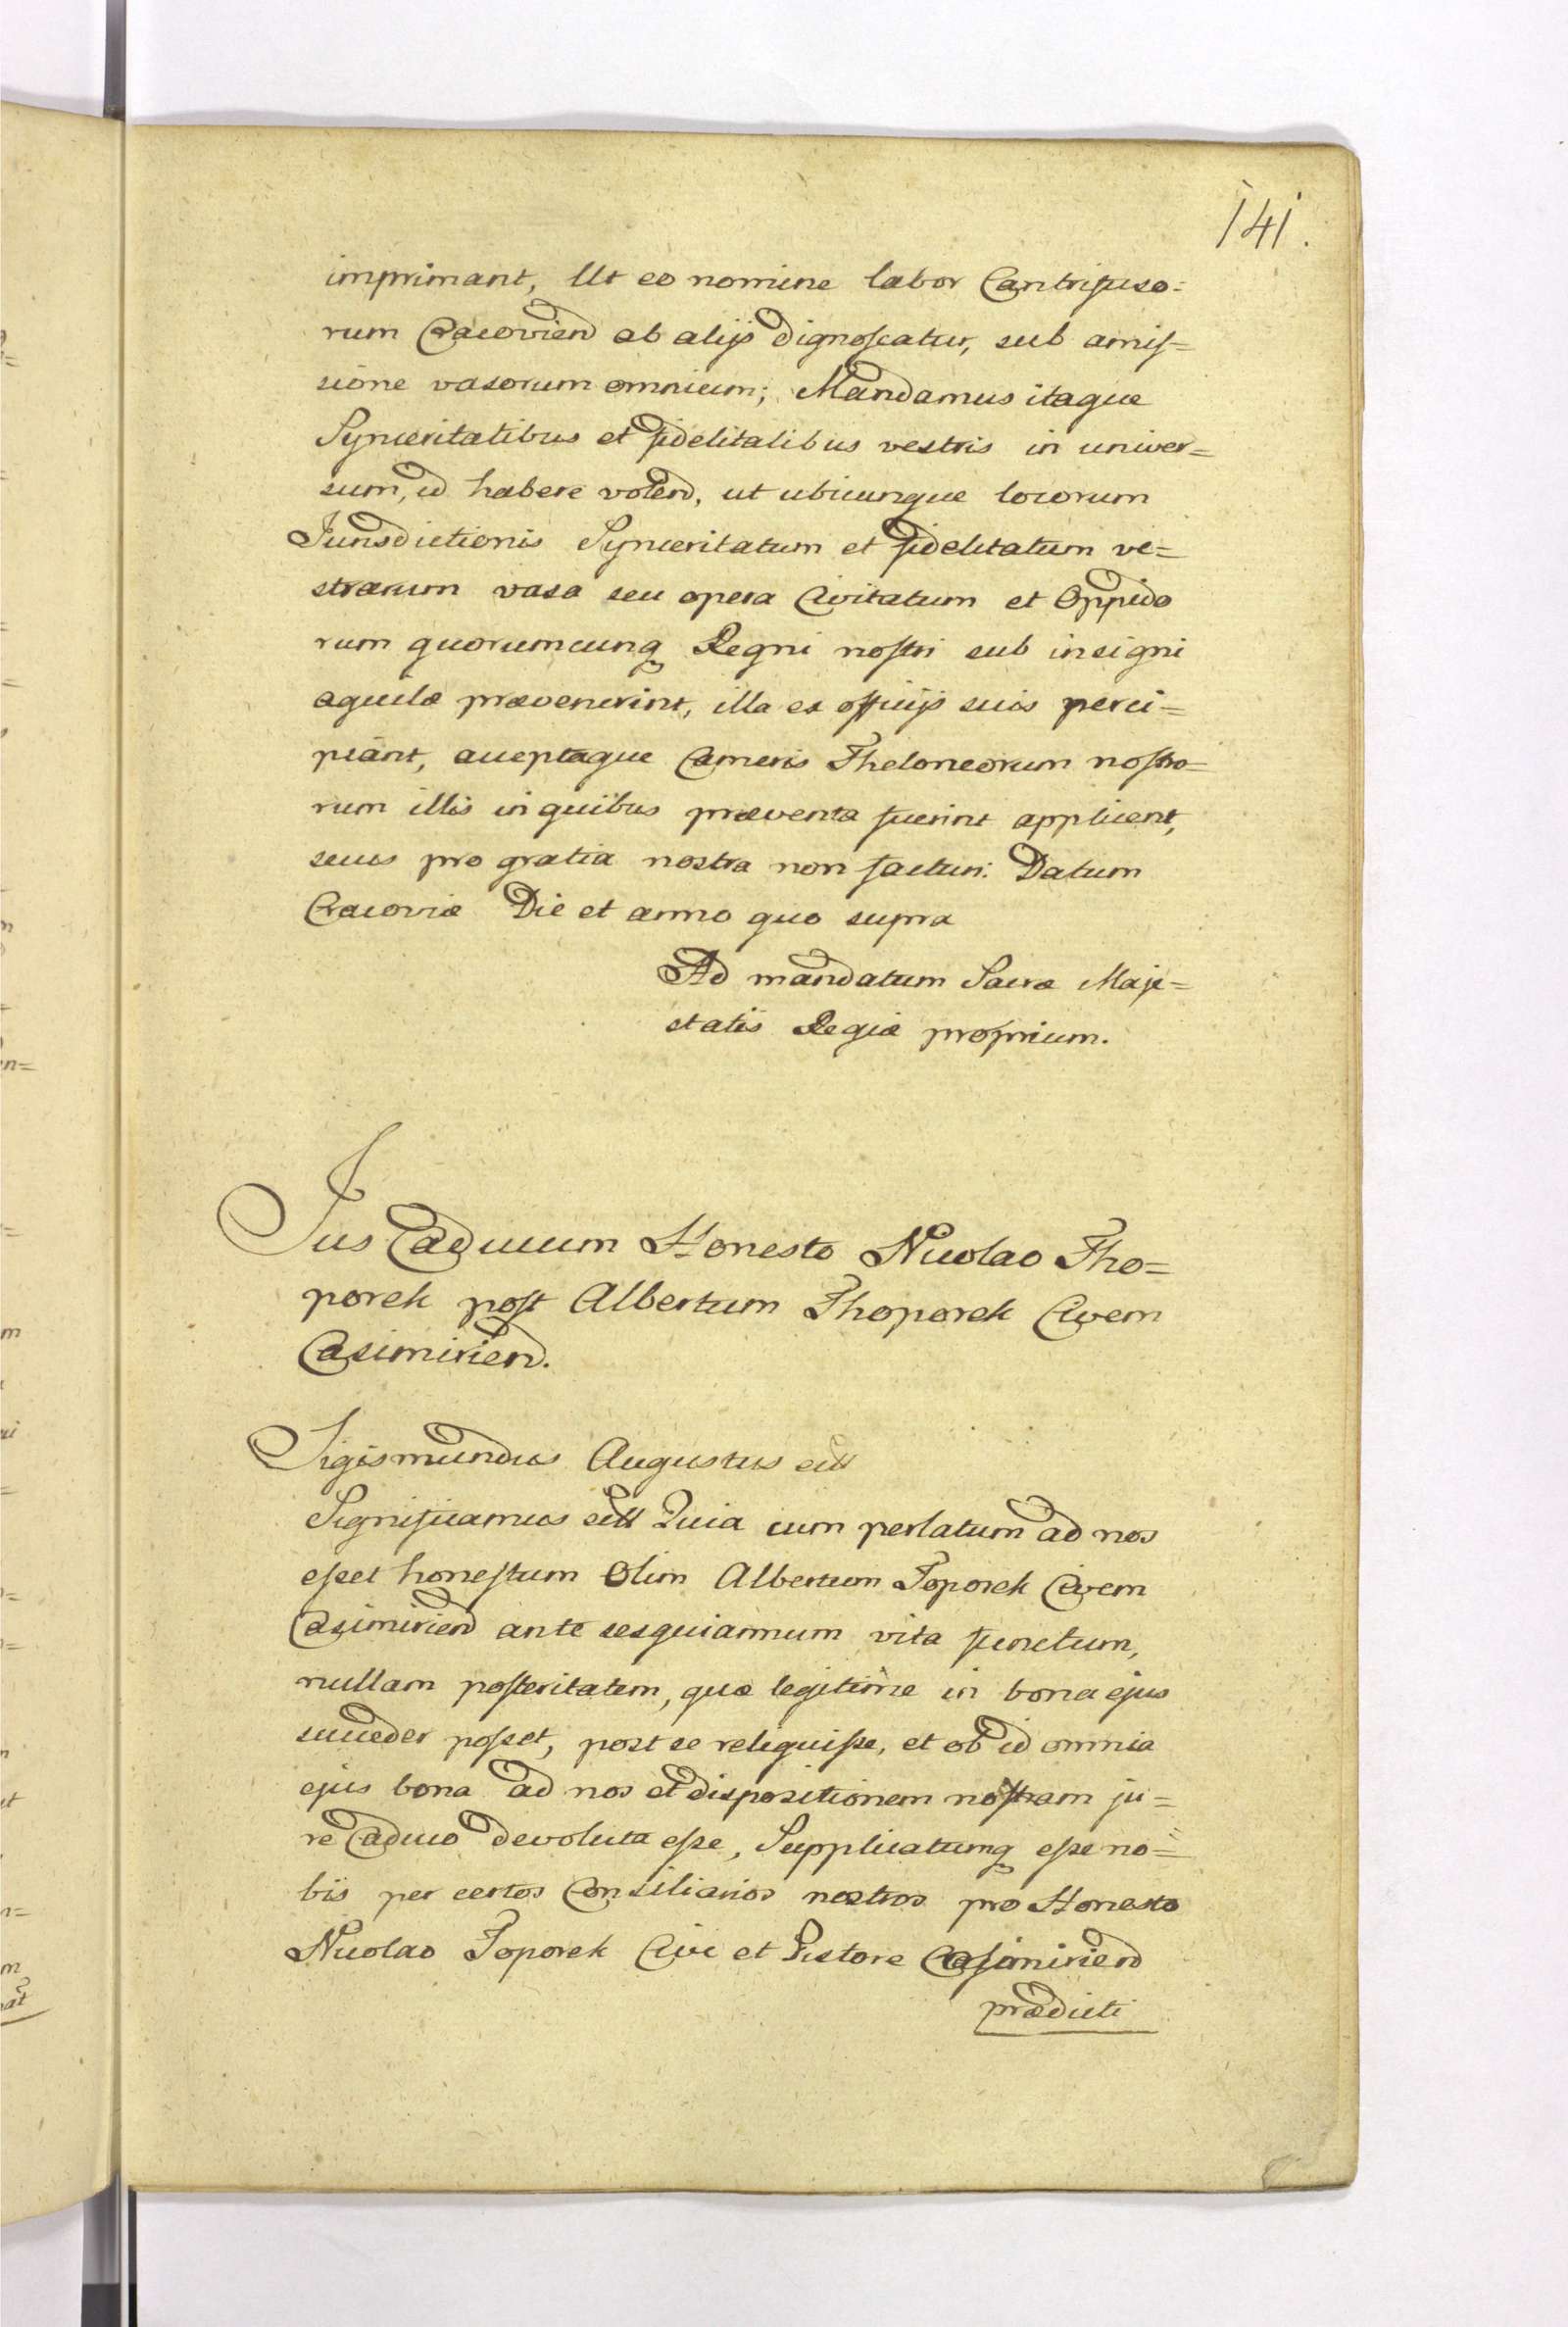 141.
imprimant, Ut eo nomine labor Cantrifuso=
rum Cracovien ab alijs dignoscatur, sub amis=
sione vasorum omnium; Mandamus itaque
Synceritatibus et fidelitatibus vestris in univer=
sum, id habere volend, ut ubicunque locorum
Jurisdictionis Synceritatum et fidelitatum ve=
strarum vasa seu opera Civitatum et Oppido
rum quorumcunq Regni nostri sub insigni
aquilæ prævenerint, illa ex officijs suis perci=
piant, acceptaque Cameris Theloneorum nostro=
rum illis in quibus præventa fuerint applicent,
secus pro gratia nostra non facturi. Datum
Cracoviæ Die et anno quo supra
Ad mandatum Sacræ Maje=
statis Regiæ proprium.
Jus Caducum Honesto Nicolao Tho=
porek post Albertum Thoporek Civem
Casimirien.
Sigismundus Augustus etc
Significamus etc Quia cum perlatum ad nos
esset honestum Olim Albertum Toporek Civem
Casimirien ante sesquiannum vita functum,
nullam posteritatem, quæ legitime in bona ejus
succeder posset, post se reliquisse, et ob id omnia
ejus bona ad nos et dispositionem nostram ju=
re Caduco devoluta esse, Supplicatumq esse no=
bis per certos Consiliarios nostros pro Honesto
Nicolao Toporek Cive et Pistore Casimirien
prædicti